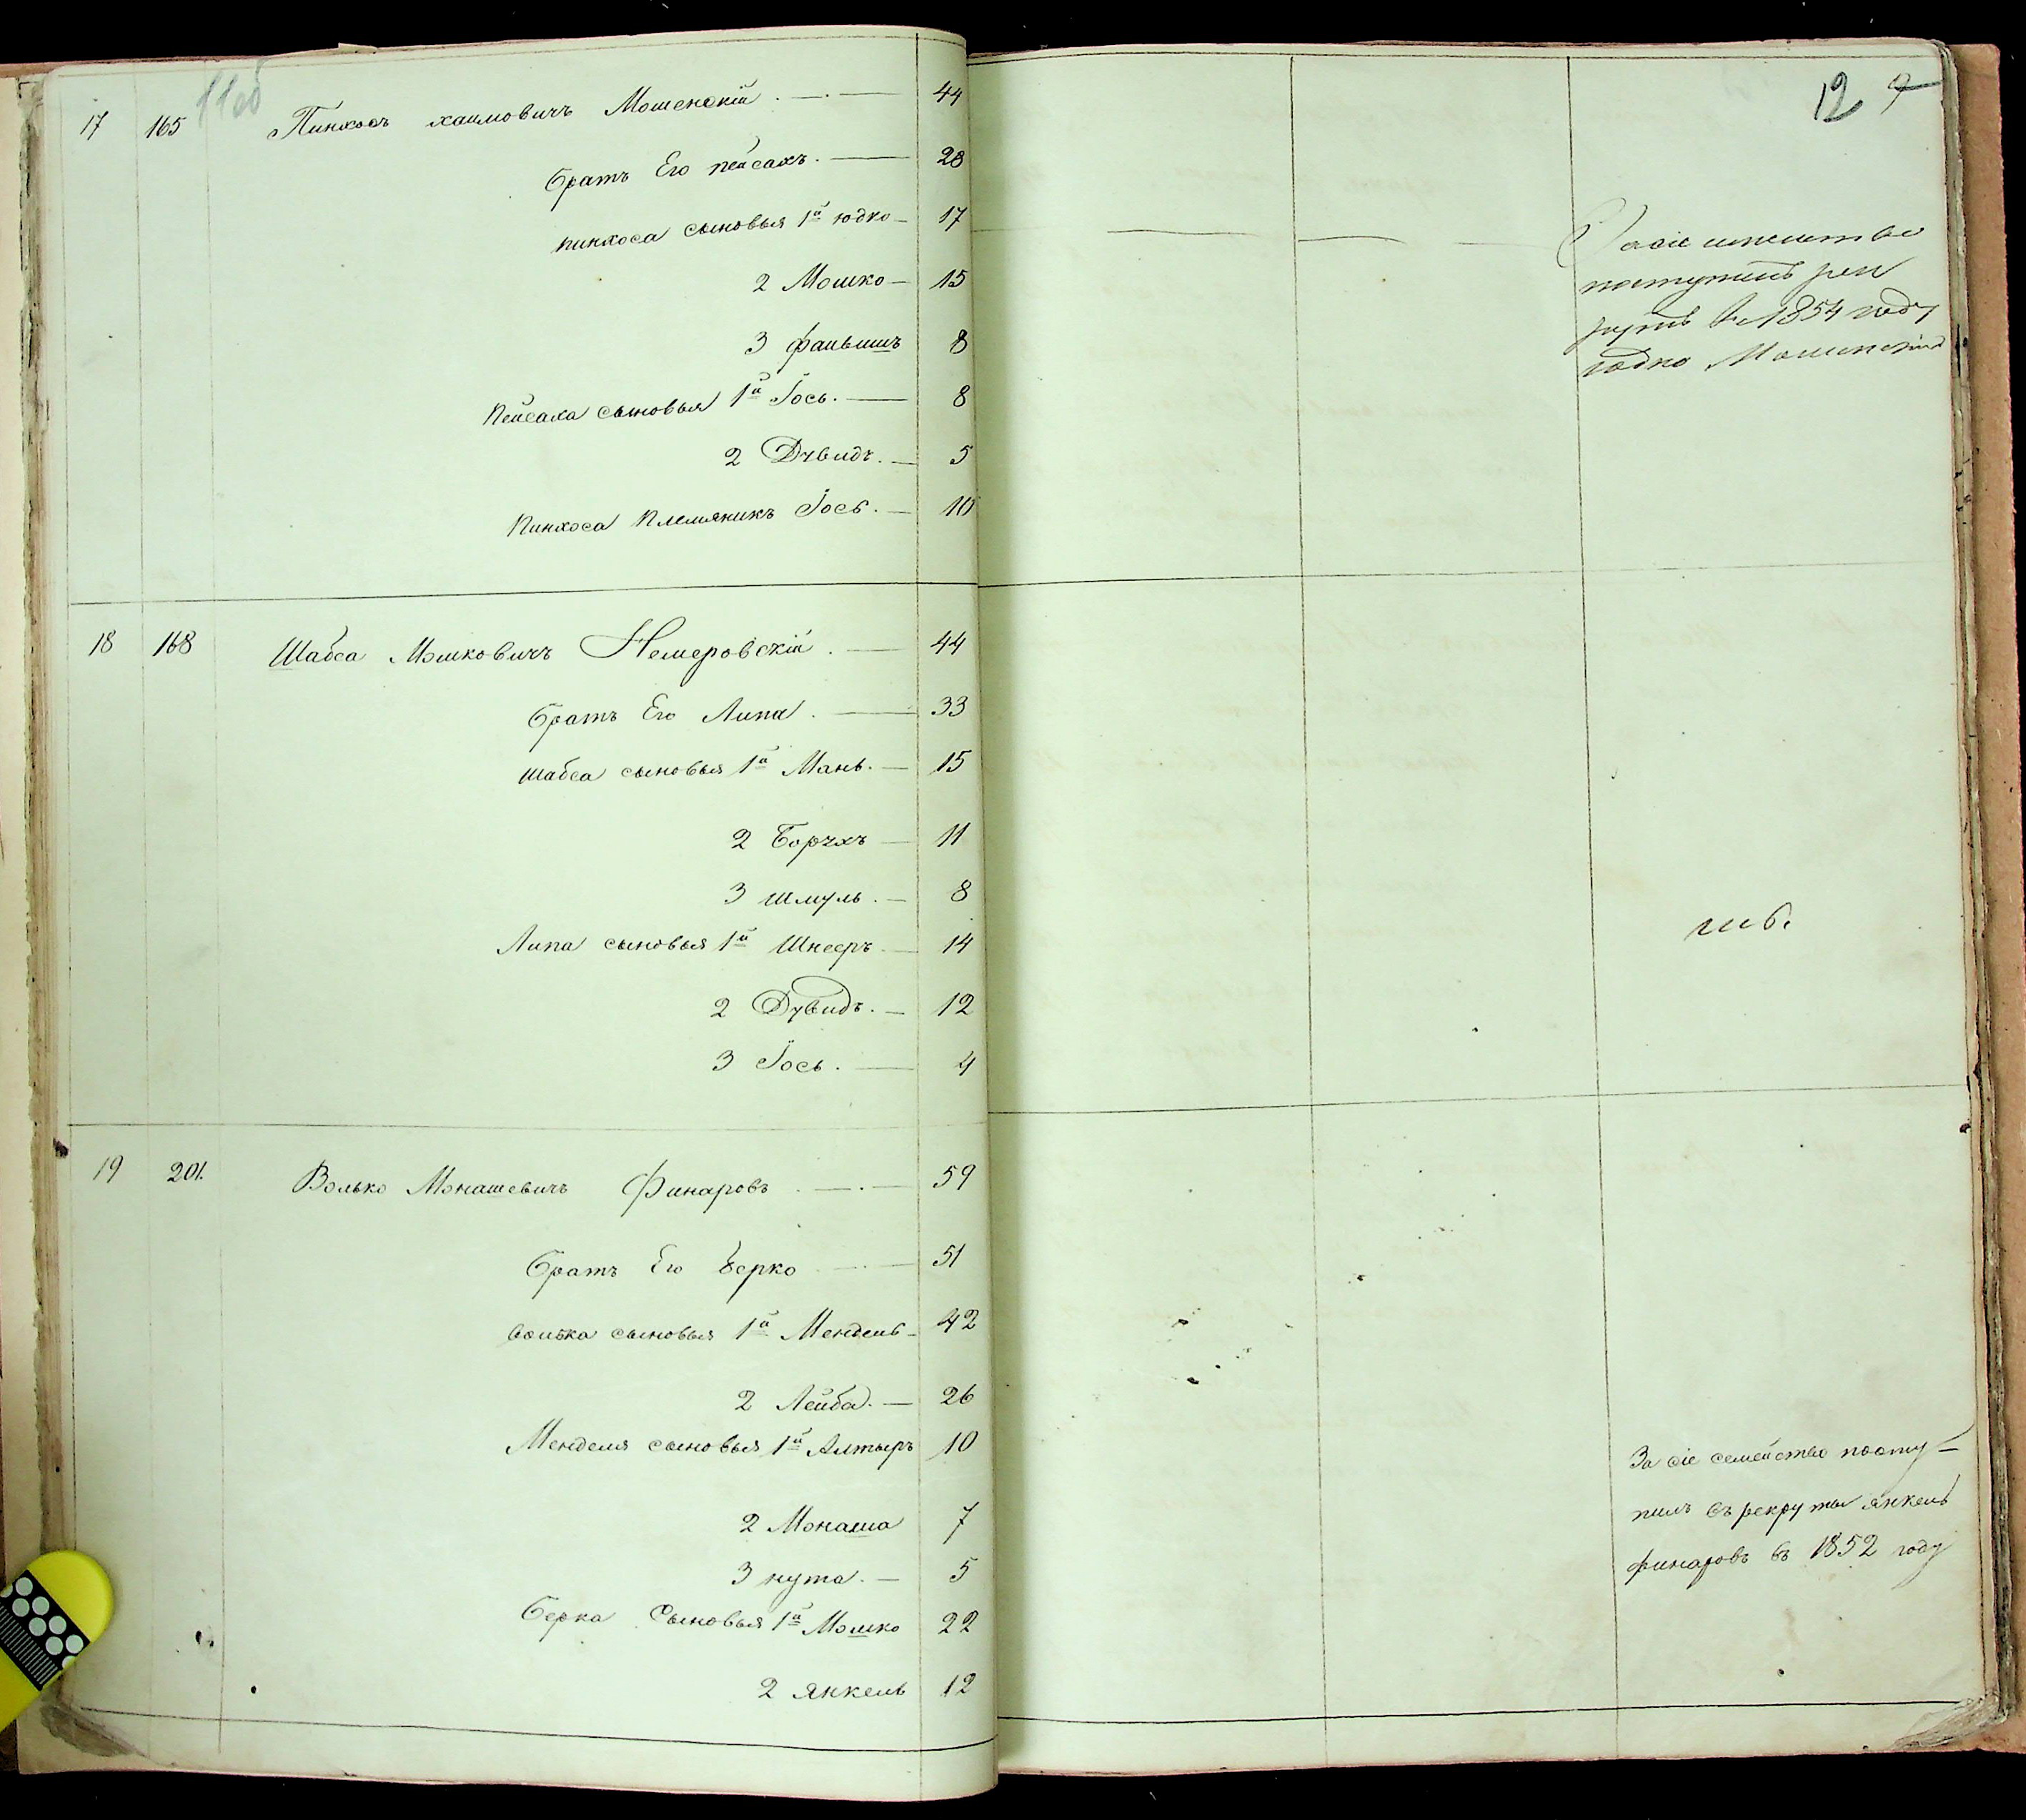 11об
17 165 Пинхосъ хаимовичъ Мошенскій 44
братъ Его пейсахъ. 28
пинхоса сыновья 1й юдко 17
2 Мошко 15
3 фаивишъ 8
Пейсаха сыновья 1й Іось. 8
2 Дувидъ. 5
Пинхоса Племяникъ Іось. 10
18 168 Шабса Мошковичъ Немеровскій 44
братъ Его Липа. 33
шабса сыновья 1й Мань. 15
2 Борухъ 11
3 шмуль. 8
Липа сыновья 1й Шнееръ 14
2 Дувидъ. 12
3 Іось. 4
19 201. Волько Монашевичъ Финаровъ 59
братъ Его берко 51
волька сыновья 1й Мендель 42
2 Лейба. 26
Менделя сыновья 1й Алтыръ 10
2 Монаша 7
3 нута. 5
Берка Сыновья 1й Мошко 22
2 янкель 12
12
За сіе
поступилъ рек
рутъ въ 1854 году
юдко Мошенскій
За сіе семейство посту-
пилъ въ рекруты янкель
финаровъ въ 1852 году